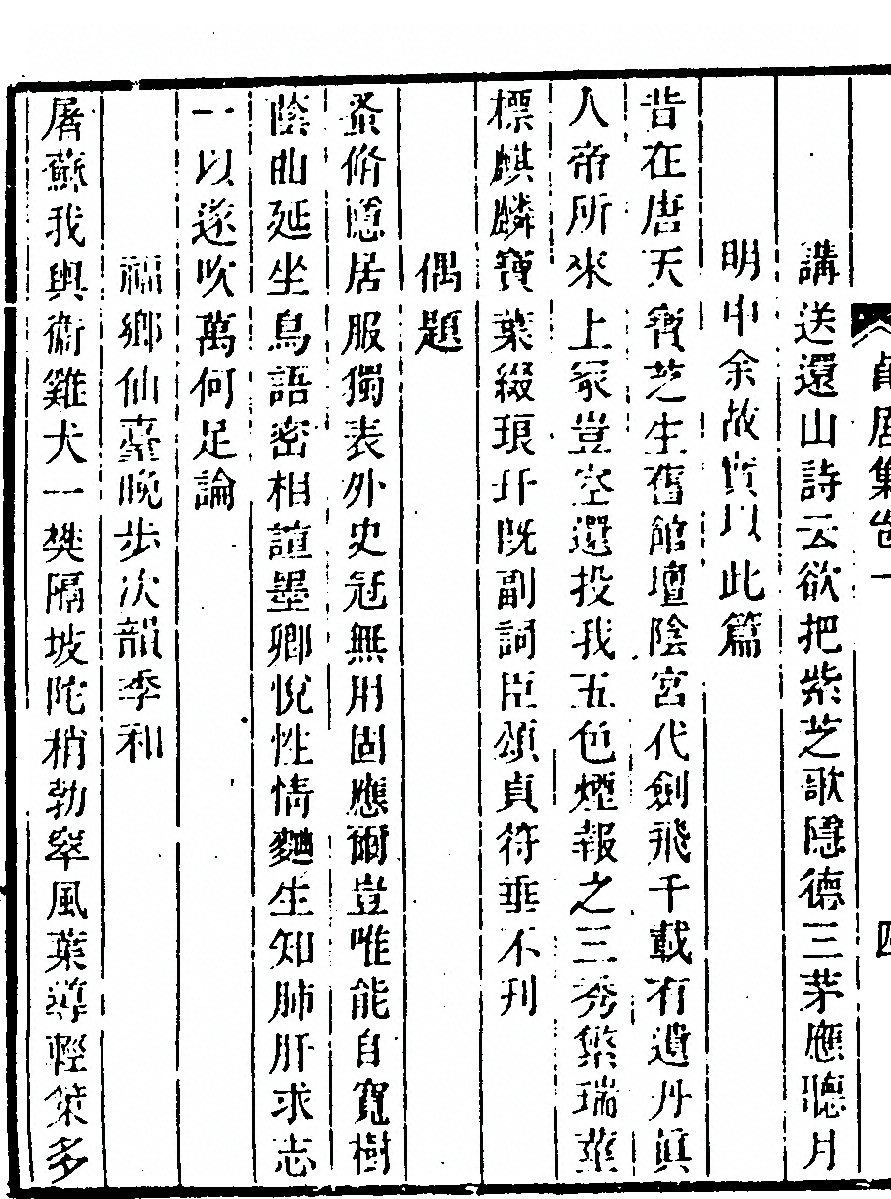 貞居集卷一
四
講送還山詩云欲把紫芝歌隱德三茅應聽月
明中余故賓以此篇
昔在唐天寶芝生舊館壇陰宮代劍飛千載有遺丹真
人帝所來上冢豈空還投我五色煙報之三秀繁瑞葉
標麒麟寶葉綴琅玕既副詞臣頌貞符垂不刊
偶題
蚤脩隱居服獨表外史冠無用固應爾豈唯能自寬樹
陰曲延坐鳥語密相諠墨卿悅性情麴生知肺肝求志
一以遂吹萬何足論
福鄉仙臺晚步次韻季和
屠蘇我與衞雞犬一樊隔坡陀稍勃窣風葉導輕策多